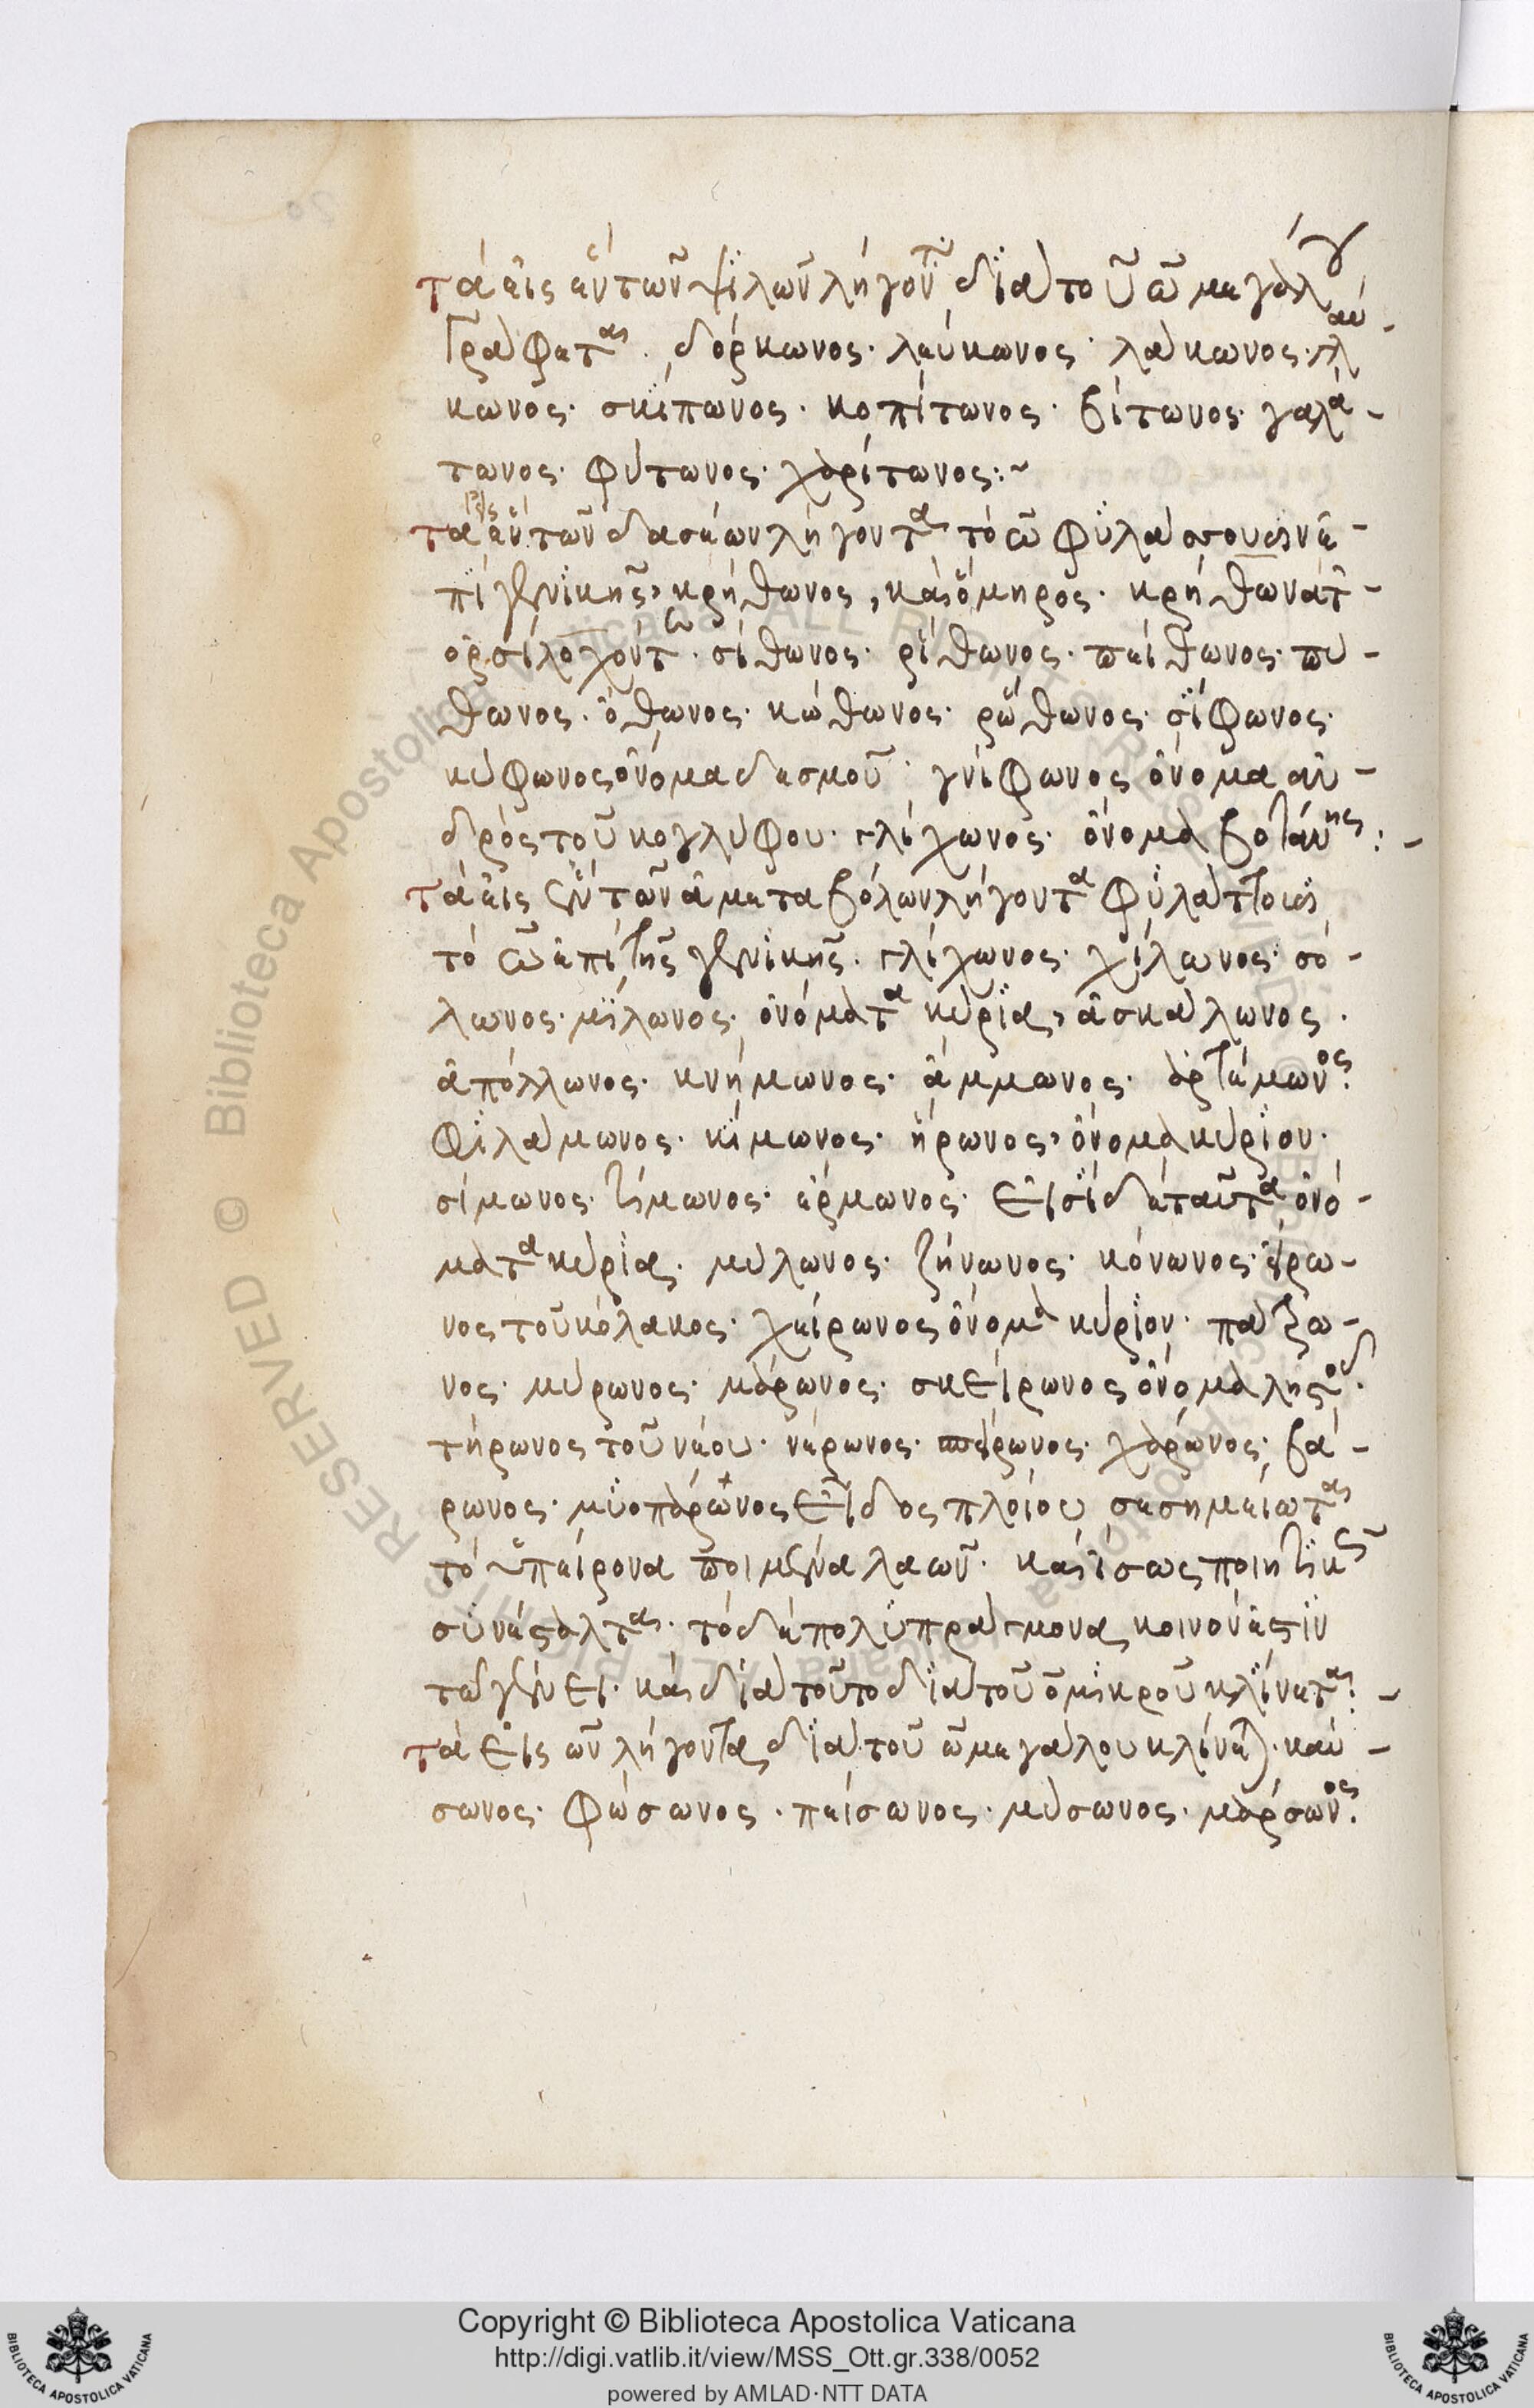 τὰ εἰς ἓν τῶν ψιλῶν λήγοντα διὰ τοῦ ω μεγάλου
γράφεται. δόρκωνος· λεύκωνος· λάκωνος· γλαύ-
κωνος· σκίπωνος· κοπίτωνος· βίτωνος· γαλά-
τωνος· φύτωνος· χαρίτωνος:~
τὰ εἰς ἓν τῶν δασέων λήγοντα τὸ ω φυλάσσουσιν ἐ-
πὶ γενικῆς, κρήθωνος, καὶ ὅμηρος. κρήθωνά τ'
ὀρσίλοχόν τε. σίθωνος· ῥίθωνος· πείθωνος· πύ-
θωνος. ὄθωνος· κώθωνος· ῥώθωνος· σίφωνος·
κύφωνος ὄνομα δεσμοῦ· γνίφωνος ὄνομα ἀν-
δρὸς τοῦ κογλύφου. γλίχωνος· ὄνομα βοτάνης:-
τὰ εἰς ἓν τῶν ἀμεταβόλων λήγοντα φυλάττουσι
τὸ ω ἐπὶ τῆς γενικῆς. γλίχωνος· χίλωνος· σό-
λωνος· μίλωνος· ὀνόματα κύρια, ἀσκάλωνος.
ἀπόλλωνος· κνήμωνος· ἄμμωνος· ἀρτέμωνος:
φιλάμωνος· κίμωνος· ἥρωνος, ὄνομα κύριον·
σίμωνος· τίμωνος· ἕρμωνος· εἰσὶ δὲ ταῦτα ὀνό-
ματα κύρια. μύλωνος· ζήνωνος· κόνωνος· ἴρω-
νος τοῦ κόλακος· χείρωνος ὄνομα κύριον· παύζω-
νος· μύρωνος· μάρωνος· σκείρωνος ὄνομα λῃστοῦ.
τήρωνος τοῦ νέου· νέρωνος· πύρωνος· χάρωνος· βά-
ρωνος· μυοπάρωνος εἶδος πλοίου σεσημείωται
τὸ ὑπείρονα ποιμένα λαῶν. καὶ ἴσως ποιητικῶς
συνέσταλται. τὸ δὲ πολυπράγμονα κοινόν ἐστιν
τῷ γένει. καὶ διὰ τοῦτο διὰ τοῦ ο μικροῦ κλίνεται:-
τὰ εἰς ων λήγοντα διὰ τοῦ ω μεγάλου κλίνεται. καύ-
σωνος· φύσωνος· πείσωνος· μύσωνος· μάρσωνος:
Copyright © Biblioteca Apostolica Vaticana
http://digi.vatlib.it/view/MSS_Ott.gr.338/0052
powered by AMLAD·NTT DATA